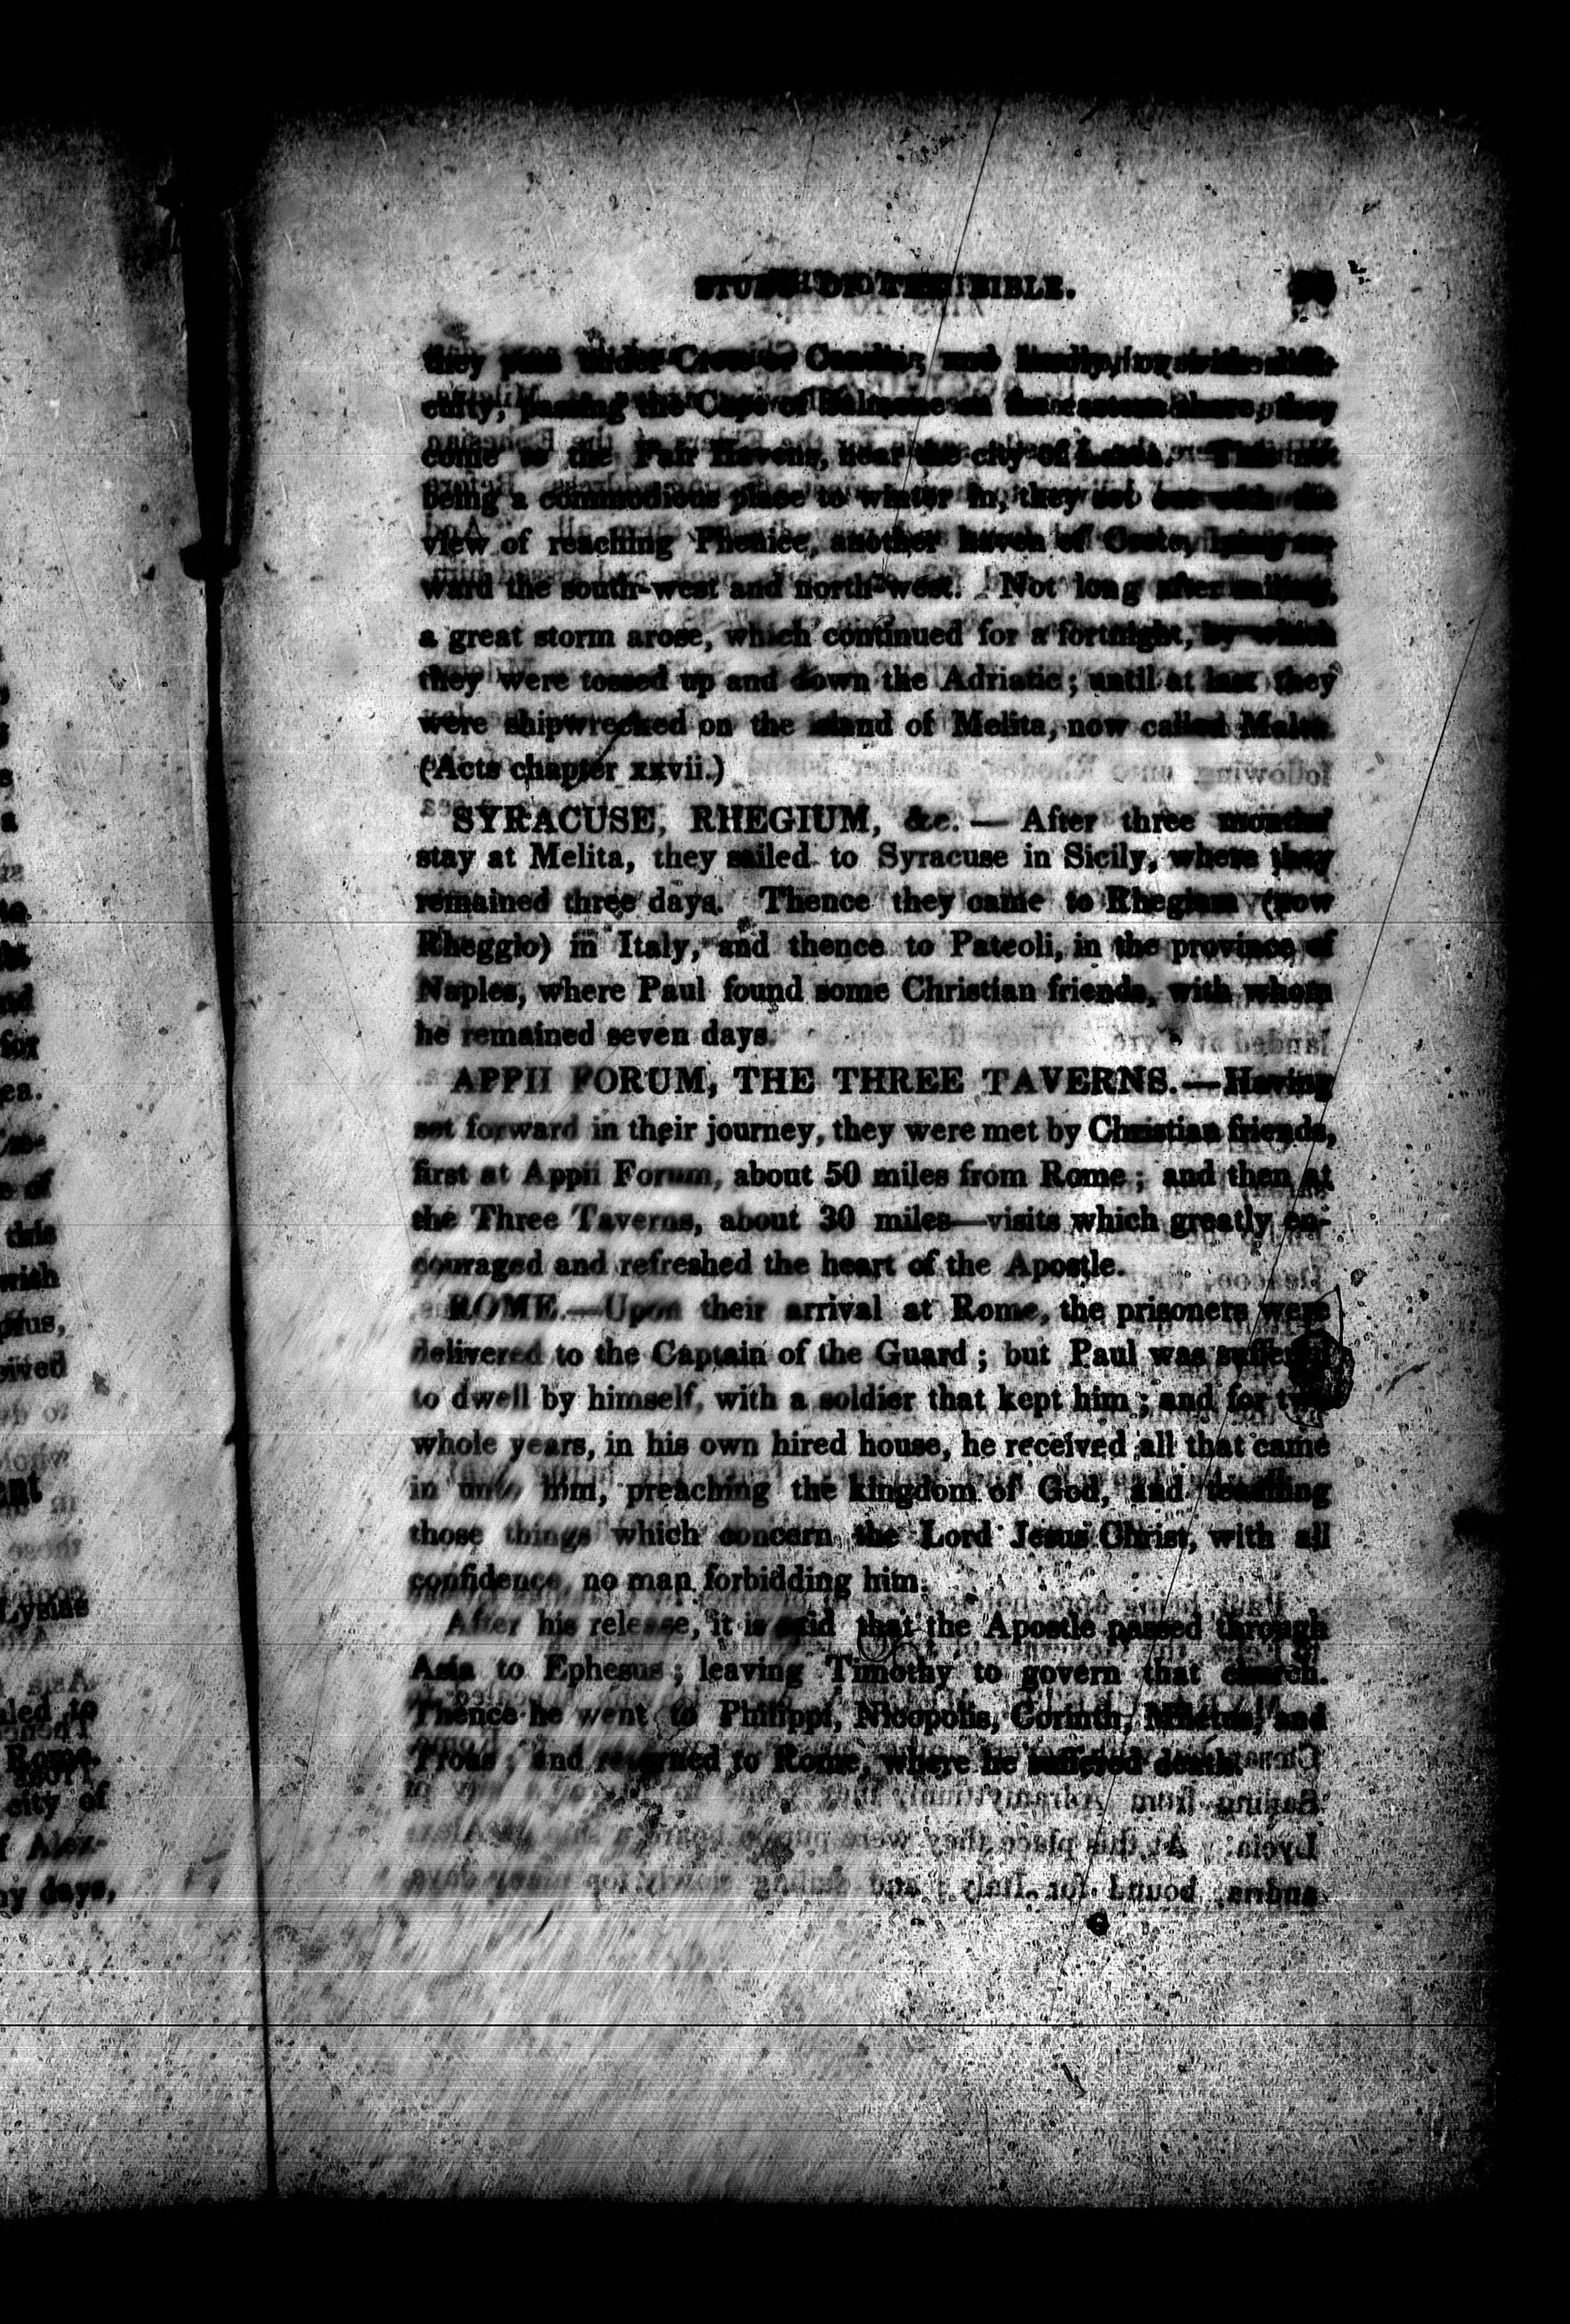 STUDY OF THE BIBLE.
they pass under Crete or Candia; and hardly, or with diffi-
culty, passing the Cape of Salmone on the eastern shore, they
come to the Fair Havens, near the city of Lasea. This not
being a commodious place to winter in, they set out with the
view of reaching Phenice, another haven of Crete, lying to-
ward the south-west and north-west. Not long after sailing,
a great storm arose, which continued for a fortnight, by which
they were tossed up and down the Adriatic; until at last they
were shipwrecked on the island of Melita, now called Malta.
(Acts chapter xxvii.)
SYRACUSE, RHEGIUM, &c.—After three months'
stay at Melita, they sailed to Syracuse in Sicily, where they
remained three days. Thence they came to Rhegium (now
Rheggio) in Italy, and thence to Puteoli, in the province of
Naples, where Paul found some Christian friends, with whom
he remained seven days.
APPII FORUM, THE THREE TAVERNS.—Having
set forward in their journey, they were met by Christian friends,
first at Appii Forum, about 50 miles from Rome; and then at
the Three Taverns, about 30 miles—visits which greatly en-
couraged and refreshed the heart of the Apostle.
ROME.—Upon their arrival at Rome, the prisoners were
delivered to the Captain of the Guard; but Paul was suffered
to dwell by himself, with a soldier that kept him; and for two
whole years, in his own hired house, he received all that came
in unto him, preaching the kingdom of God, and teaching
those things which concern the Lord Jesus Christ, with all
confidence, no man forbidding him.
After his release, it is said that the Apostle passed through
Asia to Ephesus; leaving Timothy to govern that church.
Thence he went to Philippi, Nicopolis, Corinth, Miletus, and
Troas; and returned to Rome, where he suffered death.